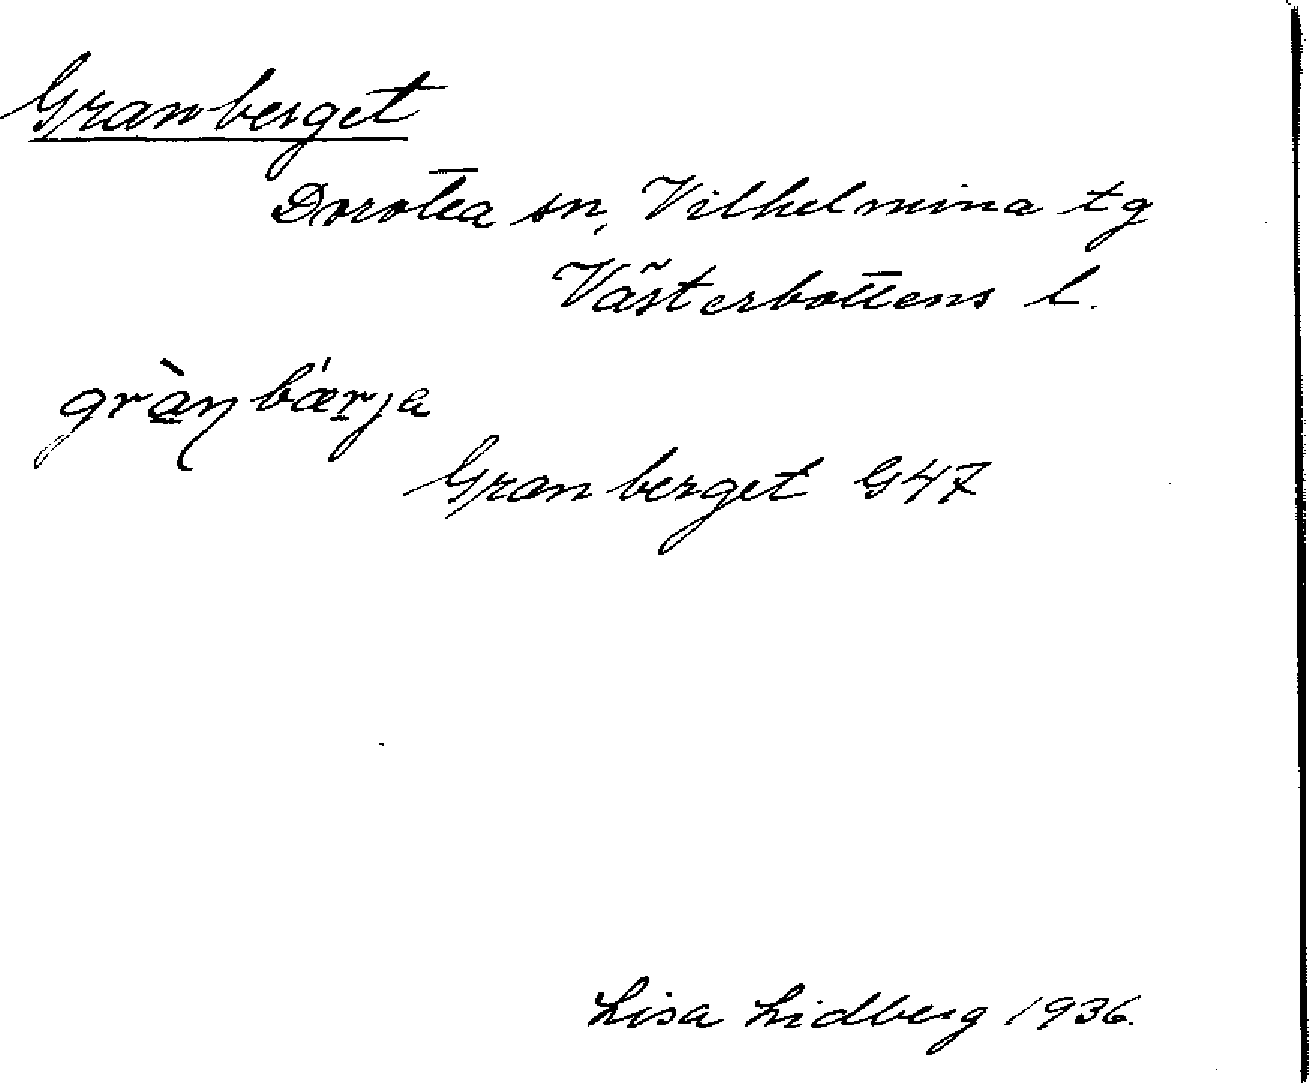 Granberget
Dorotea sn, Vilhelmina tg
Västerbottens l.
gràŋbærja
Granberget G47
Lisa Lidberg 1936.